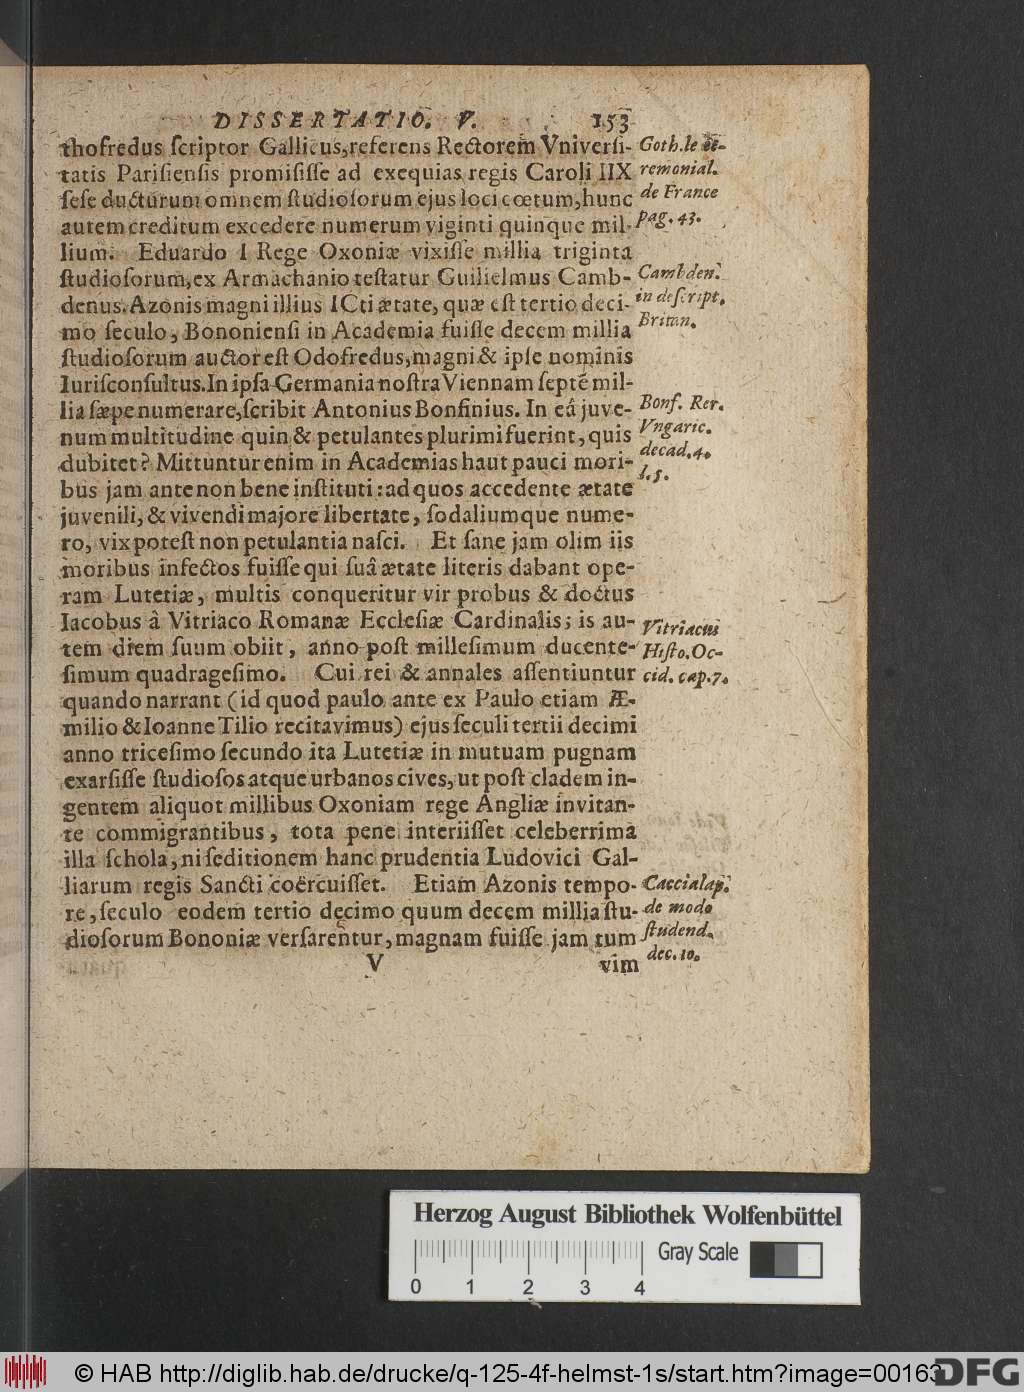 DISSERTATIO. V. 153
thofredus ſcriptor Gallicus, referens Rectorem Vniverſi-
tatis Pariſienſis promiſiſſe ad exequias regis Caroli IIX
ſeſe ducturum omnem ſtudioſorum ejus loci cœtum, hunc
autem creditum excedere numerum viginti quinque mil-
lium. Eduardo I Rege Oxoniæ vixiſſe millia triginta
ſtudioſorum, ex Armachanio teſtatur Guilielmus Camb-
denus. Azonis magni illius ICti ætate, quæ eſt tertio deci-
mo ſeculo, Bononienſi in Academia fuiſſe decem millia
ſtudioſorum auctor eſt Odofredus, magni & ipſe nominis
Iuriſconſultus. In ipſa Germania noſtra Viennam ſeptē mil-
lia ſæpe numerare, ſcribit Antonius Bonfinius. In eâ juve-
num multitudine quin & petulantes plurimi fuerint, quis
dubitet? Mittuntur enim in Academias haut pauci mori-
bus jam ante non bene inſtituti: ad quos accedente ætate
juvenili, & vivendi majore libertate, ſodaliumque nume-
ro, vix poteſt non petulantia naſci. Et ſane jam olim iis
moribus infectos fuiſſe qui ſuâ ætate literis dabant ope-
ram Lutetiæ, multis conqueritur vir probus & doctus
Iacobus â Vitriaco Romanæ Eccleſiæ Cardinalis; is au-
tem diem ſuum obiit, anno poſt milleſimum ducente-
ſimum quadrageſimo. Cui rei & annales aſſentiuntur
quando narrant (id quod paulo ante ex Paulo etiam Æ-
milio & Ioanne Tilio recitavimus) ejus ſeculi tertii decimi
anno triceſimo ſecundo ita Lutetiæ in mutuam pugnam
exarſiſſe ſtudioſos atque urbanos cives, ut poſt cladem in-
gentem aliquot millibus Oxoniam rege Angliæ invitan-
te commigrantibus, tota pene interiiſſet celeberrima
illa ſchola, ni ſeditionem hanc prudentia Ludovici Gal-
liarum regis Sancti coërcuiſſet. Etiam Azonis tempo-
re, ſeculo eodem tertio decimo quum decem millia ſtu-
dioſorum Bononiæ verſarentur, magnam fuiſſe jam tum
V vim
Goth. le ce-
remonial.
de France
pag. 43.
Cambden.
in deſcript.
Britan.
Bonf. Rer.
Vngaric.
decad. 4.
l. 5.
Vitriacus
Hiſto. Oc-
cid. cap. 7.
Caccialup.
de modo
ſtudend.
dec. 10.
Herzog August Bibliothek Wolfenbüttel
Gray Scale
0 1 2 3 4
© HAB http://diglib.hab.de/drucke/q-125-4f-helmst-1s/start.htm?image=00163
DFG